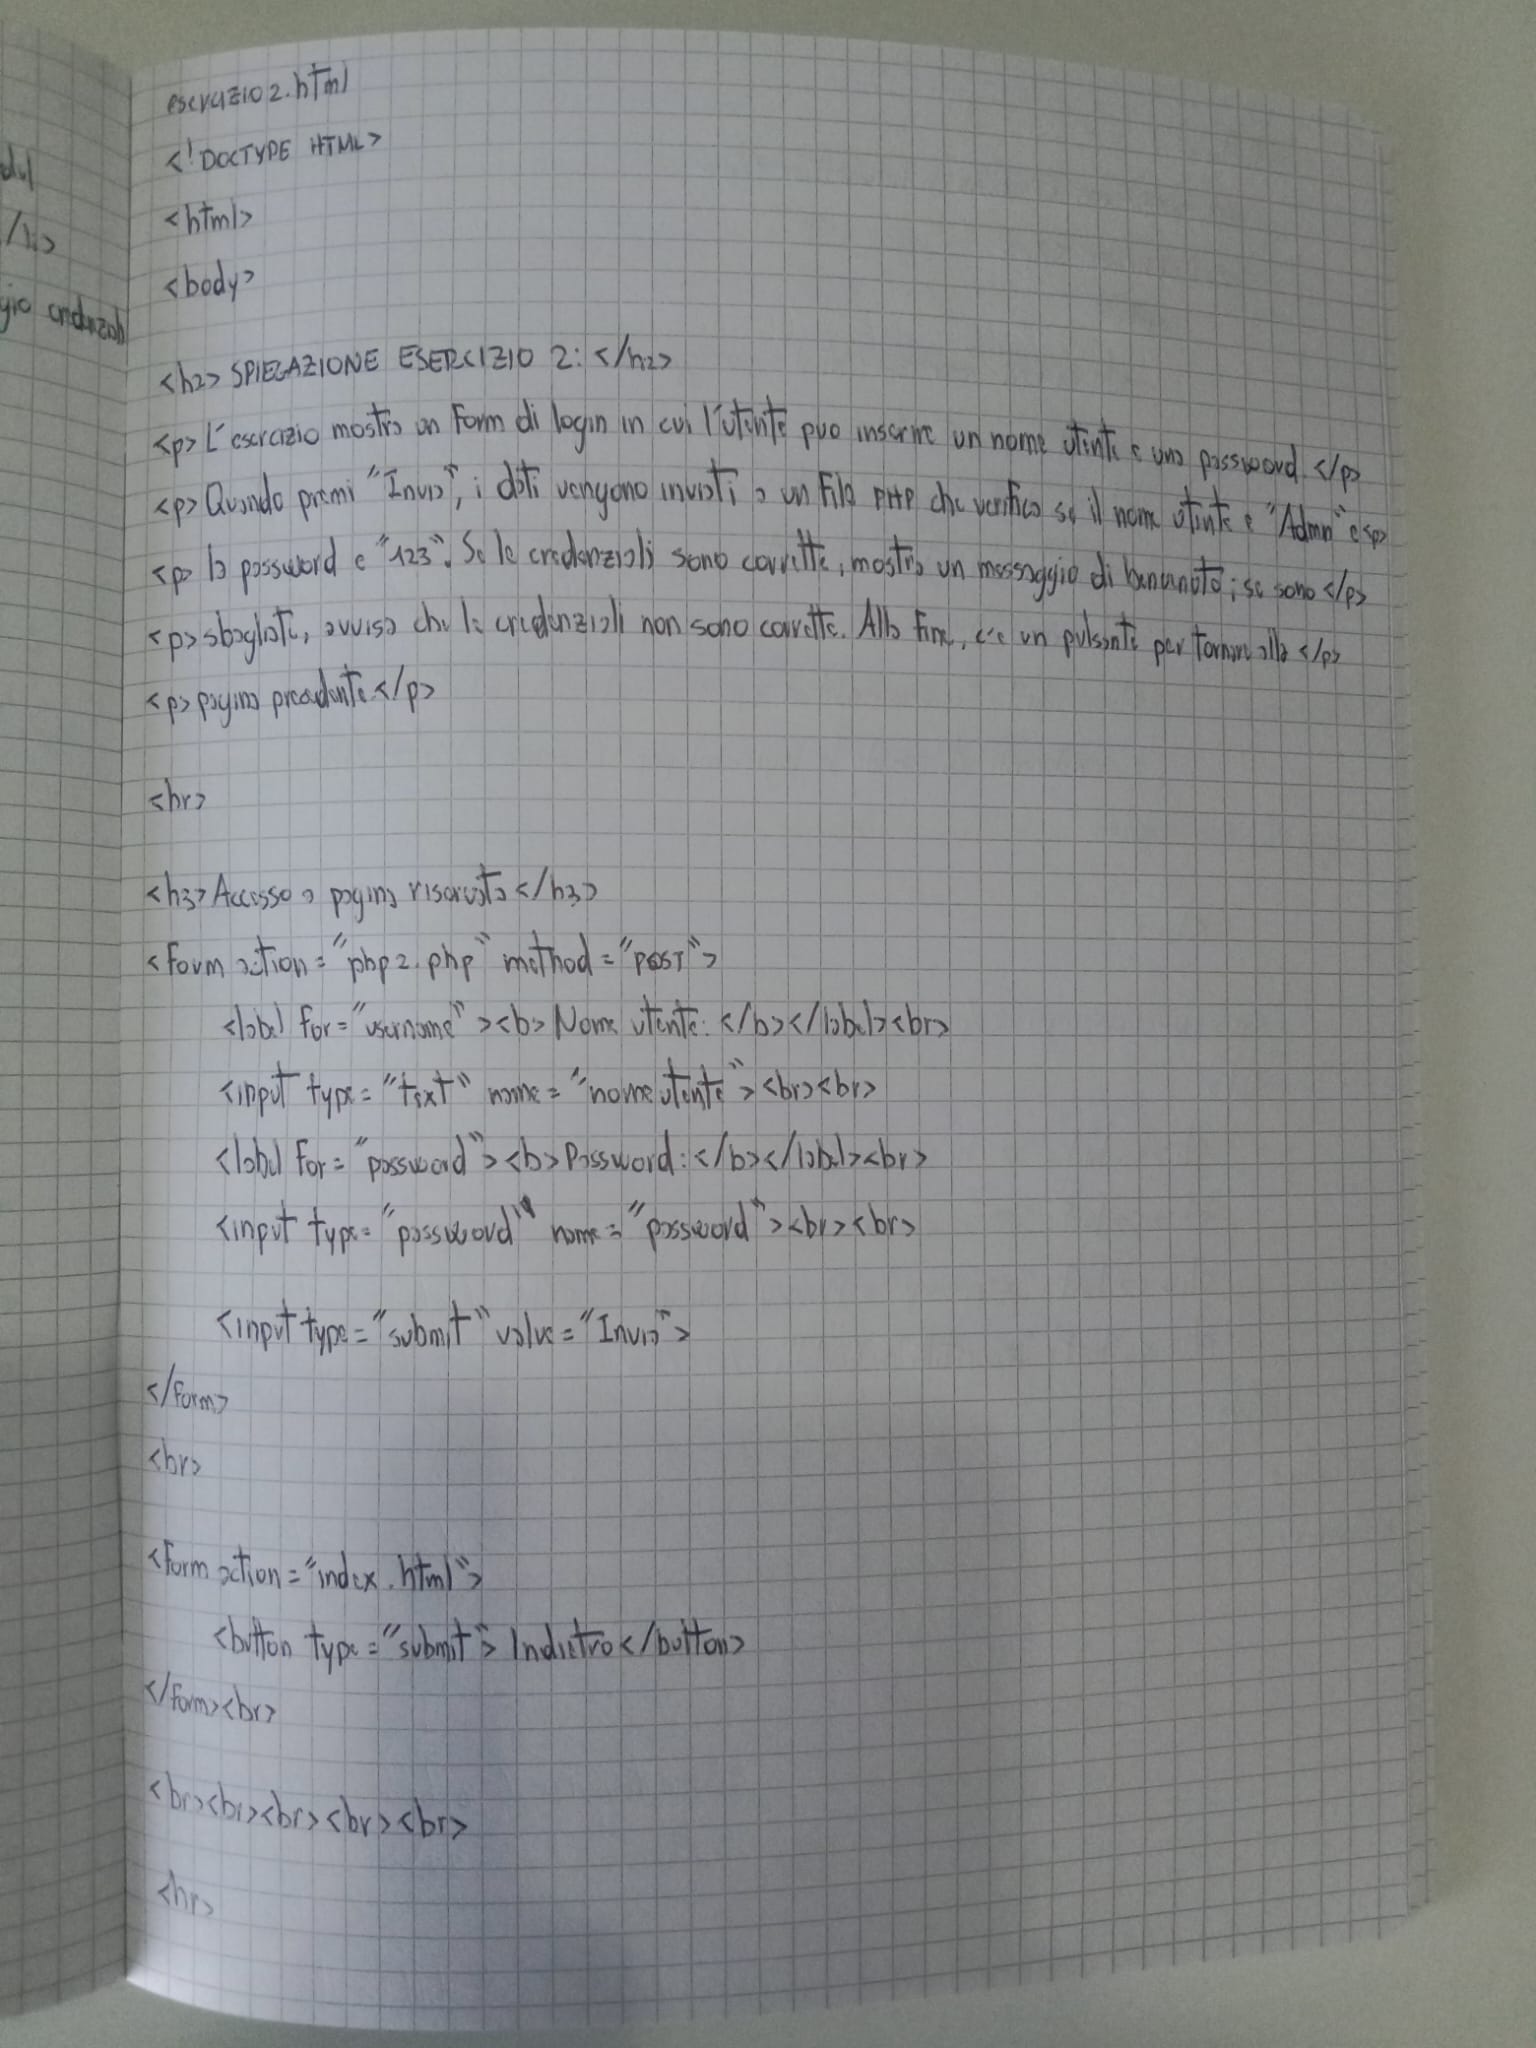 esercizio2.html
<!DOCTYPE HTML>
<html>
<body>
<h2> SPIEGAZIONE ESERCIZIO 2: </h2>
<p> L'esercizio mostra un Form di login in cui l'utente puo inserire un nome utente e una password. </p>
<p> Quando premi "Invia", i dati vengono inviati a un file PHP che verifica se il nome utente e "Admin" e <p>
<p> la password e "123". Se le credenziali sono corrette, mostra un messaggio di benvenuto; se sono </p>
<p> sbagliate, avvisa che le credenziali non sono corrette. Alla fine, c'e un pulsante per tornare alla </p>
<p> pagina precedente. </p>
<hr>
<h3> Accesso a pagina riservata </h3>
<form action="php2.php" method="POST">
<label for="username"><b> Nome utente: </b></label><br>
<input type="text" name="nomeutente"><br><br>
<label for="password"><b> Password: </b></label><br>
<input type="password" name="password"><br><br>
<input type="submit" value="Invia">
</form>
<br>
<form action="index.html">
<button type="submit"> Indietro </button>
</form><br>
<br><br><br><br><br>
<hr>
/li>
credenziali